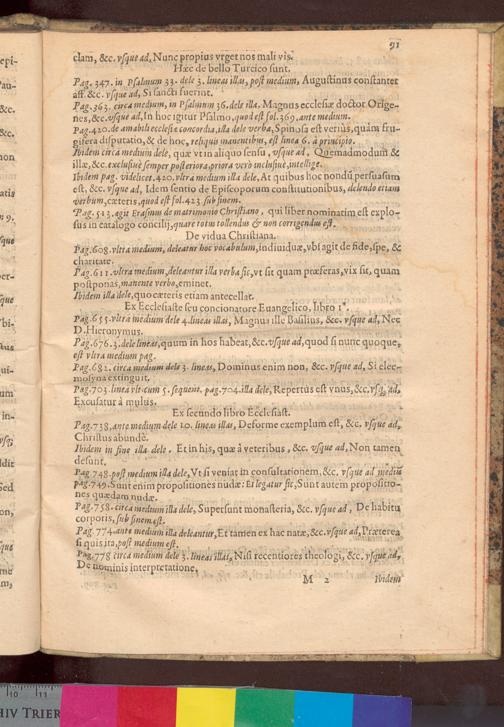 91
clam, &c. vsque ad, Nunc propius vrget nos mali vis.
Hæc de bello Turcico sunt.
Pag. 347. in Psalmum 33. dele 3. lineas illas, post medium, Augustinus constanter
ast. &c. vsque ad, Si sancti fuerint.
Pag. 363. circa medium, in Psalmum 36. dele illa. Magnus ecclesiæ doctor Orige-
nes, &c. vsque ad, In hoc igitur Psalmo, quod est fol. 369. ante medium.
Pag. 420. de amabili ecclesiæ concordia, illa dele verba, Spinosa est verius, quàm fru-
gifera disputatio, & de hoc, reliquis manentibus, est linea 6. à principio.
Ibidem circa medium dele, quæ vt in aliquo sensu, vsque ad, Quemadmodum &
illæ, &c. exclusiuè semper posteriora, priora verò inclusiuè, intellige.
Ibidem pag. videlicet. 420. vltra medium illa dele, At quibus hoc nondū persuasum
est, &c. vsque ad, Idem sentio de Episcoporum constitutionibus, delendo etiam
verbum, cæteris, quod est fol. 423 sub finem.
Pag. 513. agit Erasmus de matrimonio Christiano, qui liber nominatim est explo-
sus in catalogo concilij, quare totus tollendus & non corrigendus est.
De vidua Christiana.
Pag. 608. vltra medium, deleatur hoc vocabulum, indiuiduæ, vbi agit de fide, spe, &
charitate.
Pag. 611. vltra medium, deleantur illa verba sic, vt sit quam præferas, vix sit, quam
postponas, manente verbo, eminet.
Ibidem illa dele, quo cæteris etiam antecellat.
Ex Ecclesiaste seu concionatore Euangelico, libro 1°.
Pag. 655. vltra medium dele 4. lineas illas, Magnus ille Basilius, &c. vsque ad, Nec
D. Hieronymus.
Pag. 676. 3. dele lineas, quum in hos habeat, &c. vsque ad, quod si nunc quoque,
est vltra medium pag.
Pag. 682. circa medium dele 3. lineas, Dominus enim non, &c. vsque ad, Si elee-
mosyna extinguit.
Pag. 703. linea vlt. cum 5. sequent. pag. 704. illa dele, Repertus est vnus, &c. vsq; ad,
Excusatur à mulus.
Ex secundo libro Ecclesiast.
Pag. 738. ante medium dele 10. lineas illas, Deforme exemplum est, &c. vsque ad,
Christus abundè.
Ibidem in fine illa dele. Et in his, quæ à veteribus, &c. vsque ad, Non tamen
desunt.
Pag. 748. post medium illa dele, Vt si veniat in consultationem, &c. vsque ad mediū
pag. 749. Sunt enim propositiones nudæ: Et legatur sic, Sunt autem propositio-
nes quædam nudæ.
Pag. 758. circa medium illa dele, Supersunt monasteria, &c. vsque ad, De habitu
corporis, sub finem est.
Pag. 774. ante medium illa deleantur, Et tamen ex hac natæ, &c. vsque ad, Præterea
si quis ita, post medium est.
Pag. 778 circa medium dele 3. lineas illas, Nisi recentiores theologi, &c. vsque ad,
De nominis interpretatione.
M 2 Ibidem
10 11
HIV TRIER